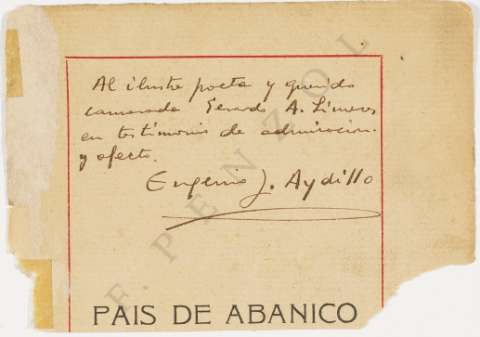 Al ilustre poeta y querido
camarada Gerardo A. Limeses
en testimonio de admiración
y afecto.
Eugenio J. Aydillo
PAIS DE ABANICO
F. PENZOL